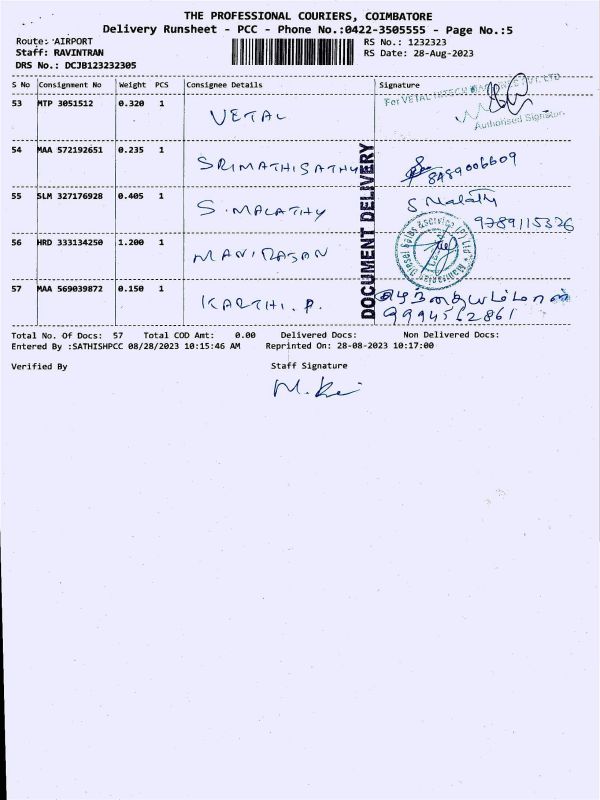 THE PROFESSIONAL COURIERS, COIMBATORE
Delivery Runsheet - PCC - Phone No.:0422-3505555 - Page No.:5
Route: AIRPORT
Staff: RAVINTRAN
DRS No.: DCJB123232305
RS No.: 1232323
RS Date: 28-Aug-2023
S No Consignment No Weight PCS Consignee Details Signature
53 MTP 3051512 0.320 1 VETAL
For VETAL HITECH
Authorised Signatory
54 MAA 572192651 0.235 1 SRIMATHISATHY 8489006609
55 SLM 327176928 0.405 1 S.MALATHY S Malathy
9789115326
56 HRD 333134250 1.200 1 MANIRASAN
57 MAA 569039872 0.150 1 KARTHI.P. குழந்தையம்மாள்
9994562861
DOCUMENT DELIVERY
Total No. Of Docs: 57 Total COD Amt: 0.00 Delivered Docs: Non Delivered Docs:
Entered By :SATHISHPCC 08/28/2023 10:15:46 AM Reprinted On: 28-08-2023 10:17:00
Verified By Staff Signature